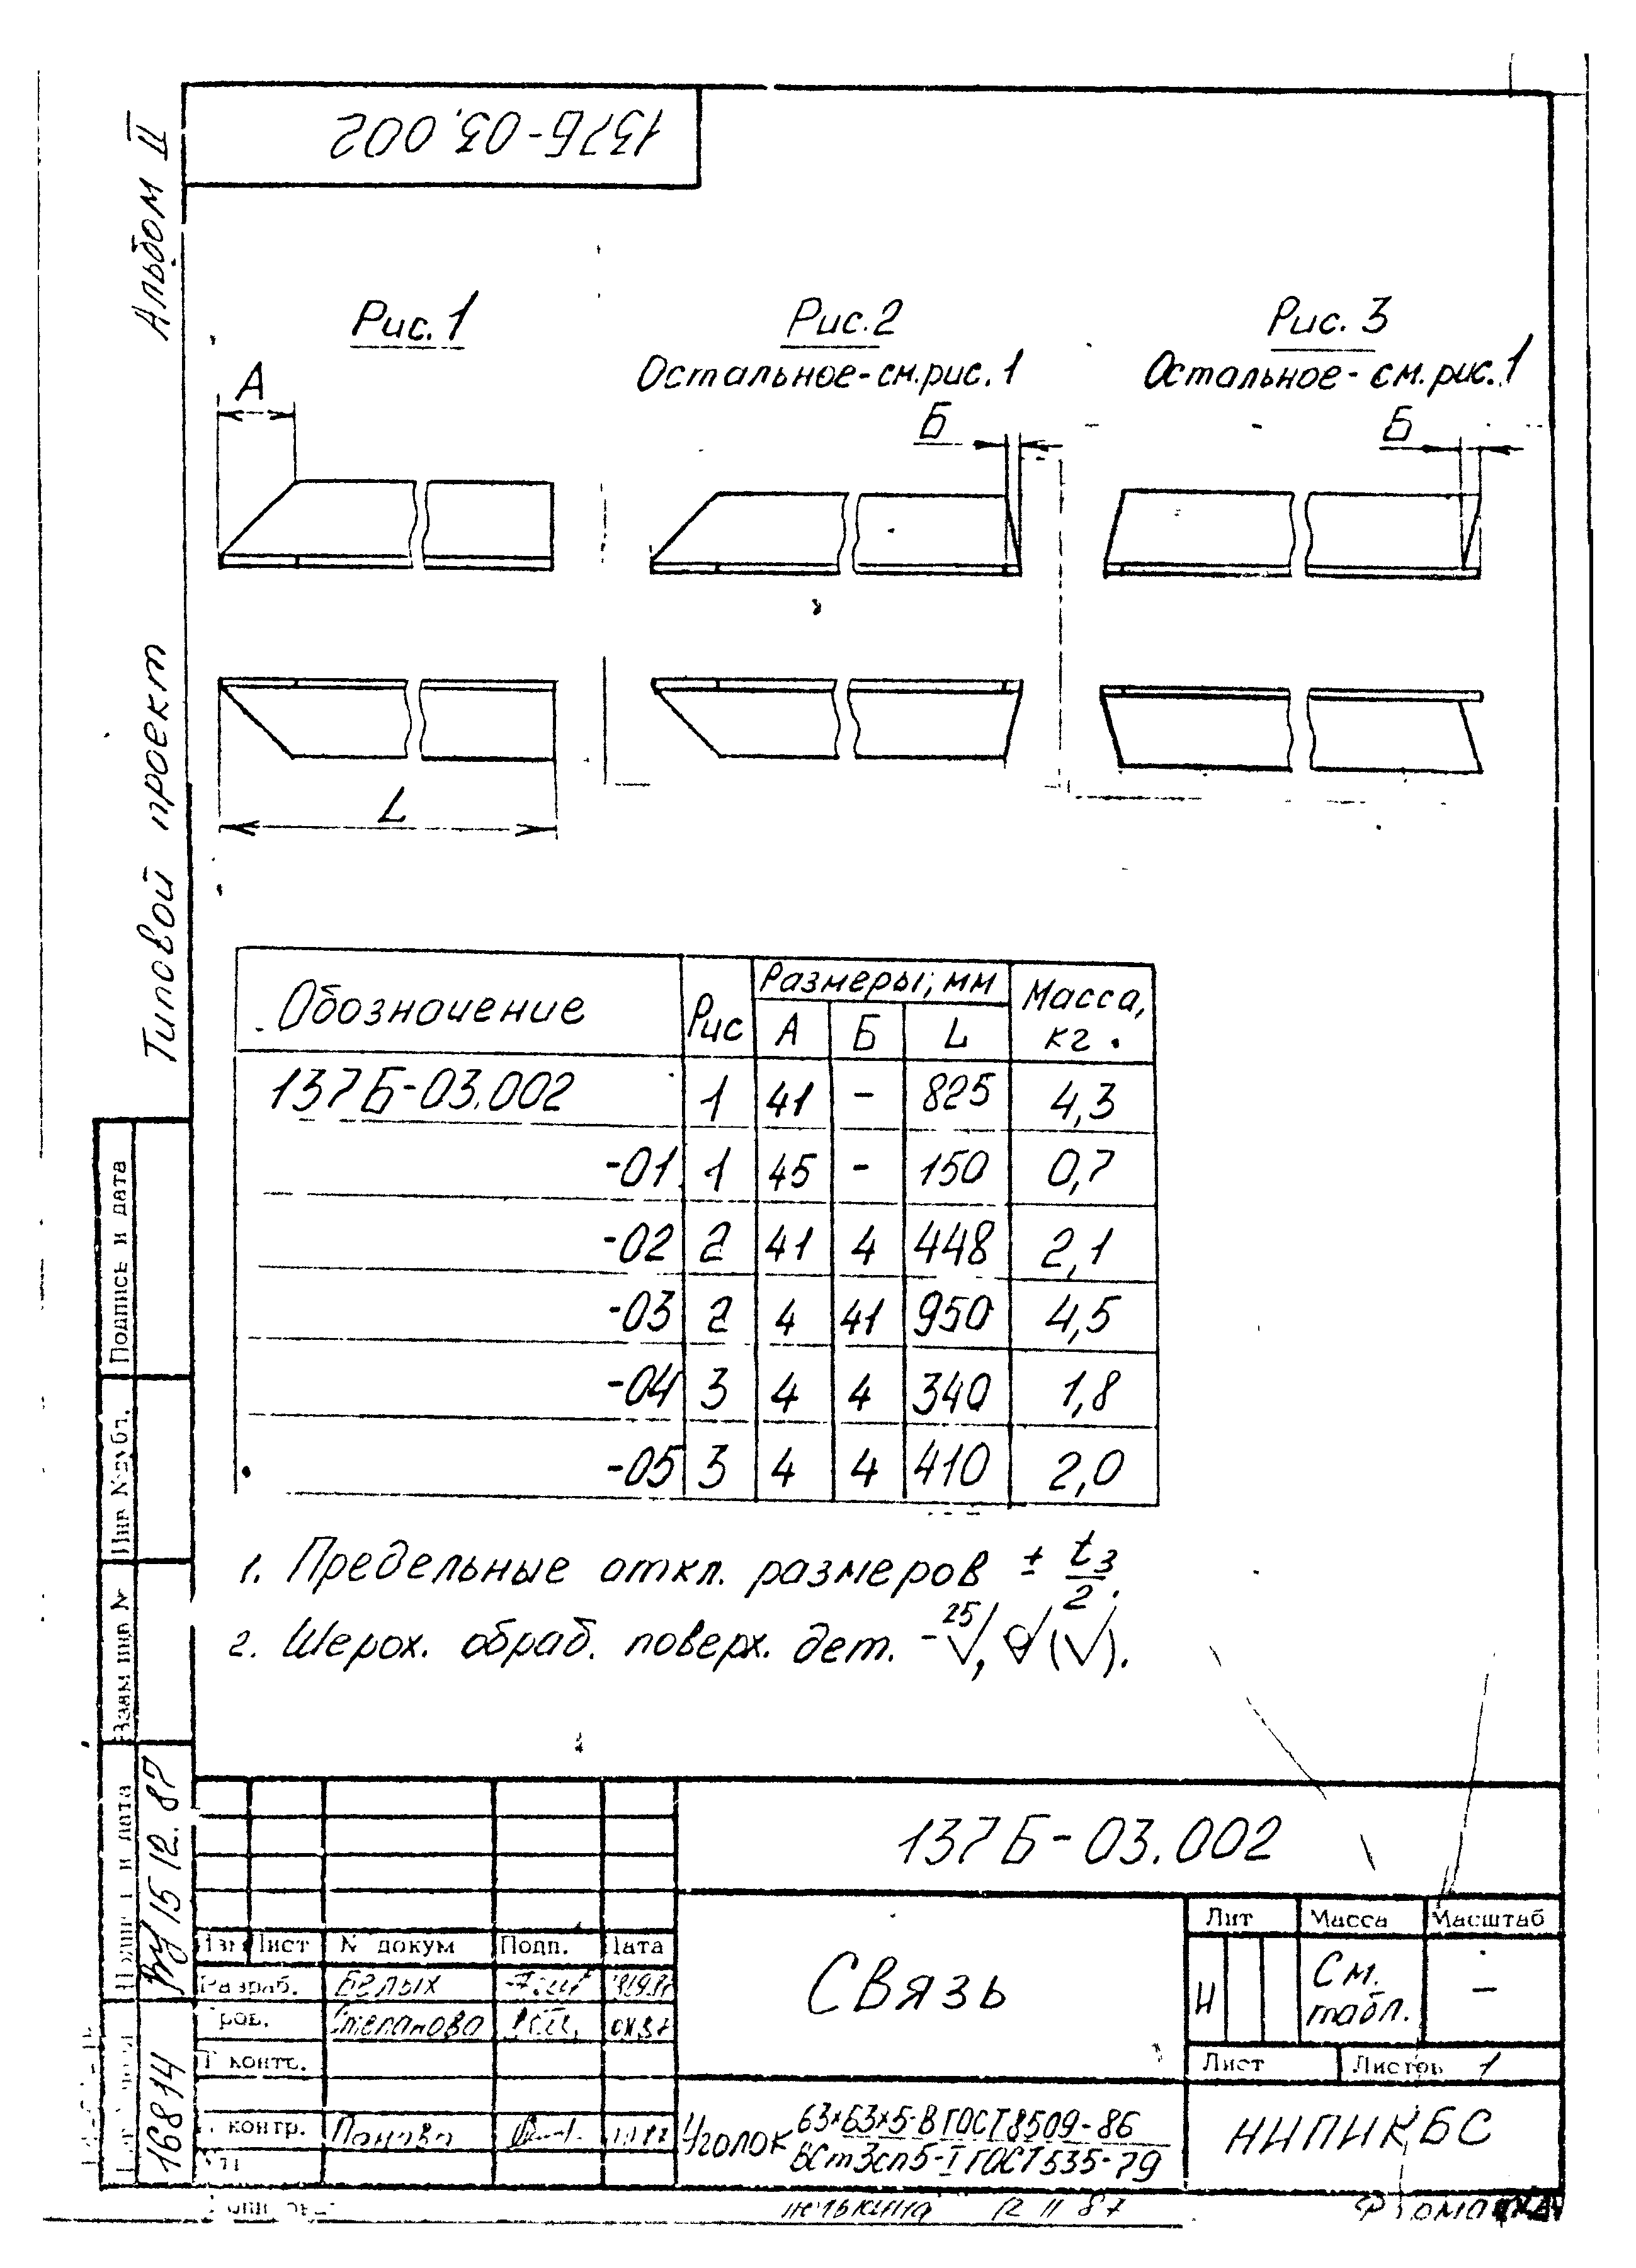 137Б-03.002
Альбом II
Типовой проект
Рис. 1
А
L
Рис. 2
Остальное - см. рис. 1
Б
Рис. 3
Остальное - см. рис. 1
Б
Обозначение Рис Размеры, мм Масса, кг.
А Б L
137Б-03.002 1 41 - 825 4,3
-01 1 45 - 150 0,7
-02 2 41 4 448 2,1
-03 2 4 41 950 4,5
-04 3 4 4 340 1,8
-05 3 4 4 410 2,0
1. Предельные откл. размеров ± t3/2.
2. Шерох. обраб. поверх. дет. - 25√, √ (√).
Подпись и дата
Взам инв №
15 12. 87
16814
137Б-03.002
Изм Лист № докум Подп. Дата
Разраб. Белых
Пров. Степанова
Т контр.
контр. Панова
Связь
Лит Масса Масштаб
И См. табл. -
Лист Листов 1
Уголок 63×63×5-В ГОСТ 8509-86
ВСт3сп5-I ГОСТ 535-79
НИПИКБС
12 11 87